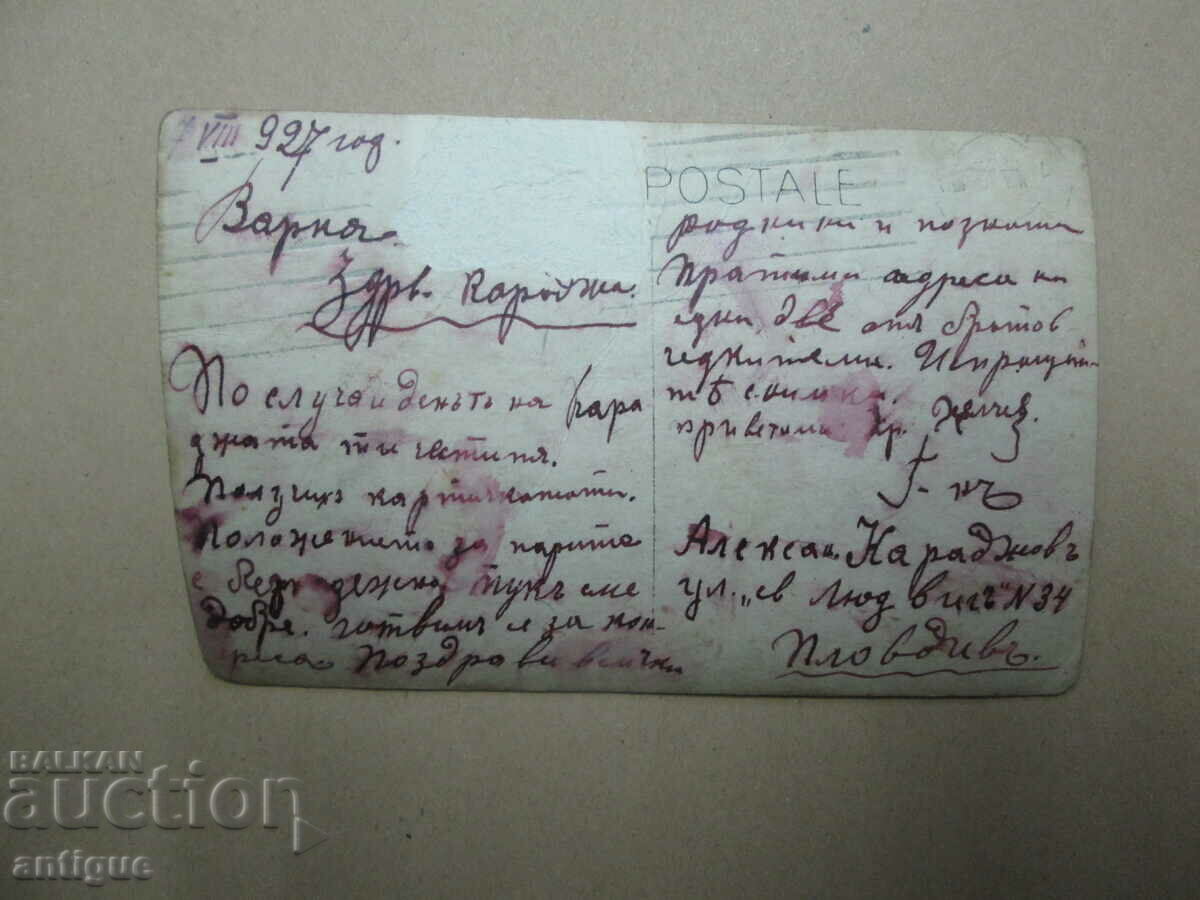 VIII 927 год.
Варна.
Здрв. Караджа.
По случай деньтъ на Кара
джата ти честитя.
Получих картичкатати.
Положението за парите
е безнадежно, тукъ сме
добре. готвим се за кон-
реса. Поздрави всички
POSTALE
роднини и позната
Пратими адреса на
едки две отя братов
чедкители. Изпращам
ти снимка.
приветом. Хр.
Алексан. Караджовъ
ул. „св Людвигъ" N 34
Пловдивъ.
BALKAN
auction
antigue